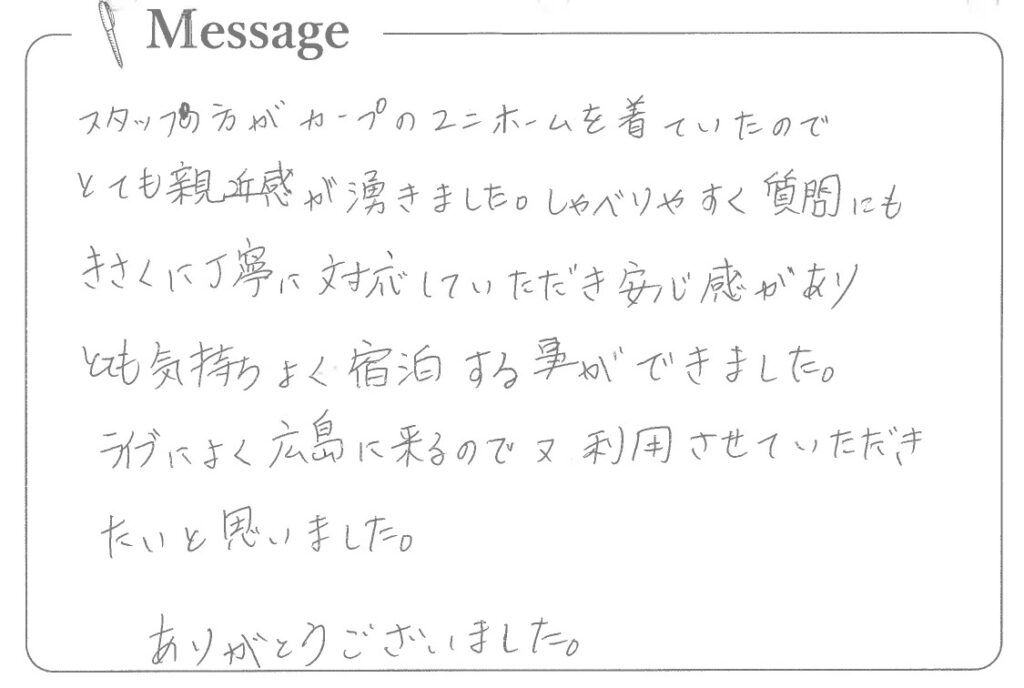 Message
スタッフの方がカープのユニホームを着ていたので
とても親近感が湧きました。しゃべりやすく質問にも
きさくに丁寧に対応していただき安心感があり
とても気持ちよく宿泊する事ができました。
ライブによく広島に来るので又利用させていただき
たいと思いました。
ありがとうございました。